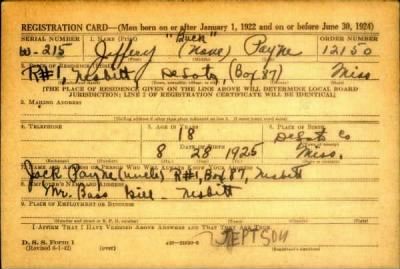 REGISTRATION CARD—(Men born on or after January 1, 1922 and on or before June 30, 1924)
SERIAL NUMBER 1. NAME (Print) "Buck" ORDER NUMBER
W-215 Jeffery (None) Payne 12150
R#1, Nesbitt DeSoto (Box 87) Miss
[THE PLACE OF RESIDENCE GIVEN ON THE LINE ABOVE WILL DETERMINE LOCAL BOARD
JURISDICTION; LINE 2 OF REGISTRATION CERTIFICATE WILL BE IDENTICAL]
3. MAILING ADDRESS
4. TELEPHONE 5. AGE IN YEARS 6. PLACE OF BIRTH
18 DeSoto Co
DATE OF BIRTH
8 28 1925 Miss.
7. NAME AND ADDRESS OF PERSON WHO WILL ALWAYS KNOW YOUR ADDRESS
Jack Payne (uncle) R#1, Box 87, Nesbitt
8. EMPLOYER'S NAME AND ADDRESS
Mr. Bass Nesbitt
9. PLACE OF EMPLOYMENT OR BUSINESS
I AFFIRM THAT I HAVE VERIFIED ABOVE ANSWERS AND THAT THEY ARE TRUE.
D. S. S. Form 1
(Revised 6-7-42) (over)